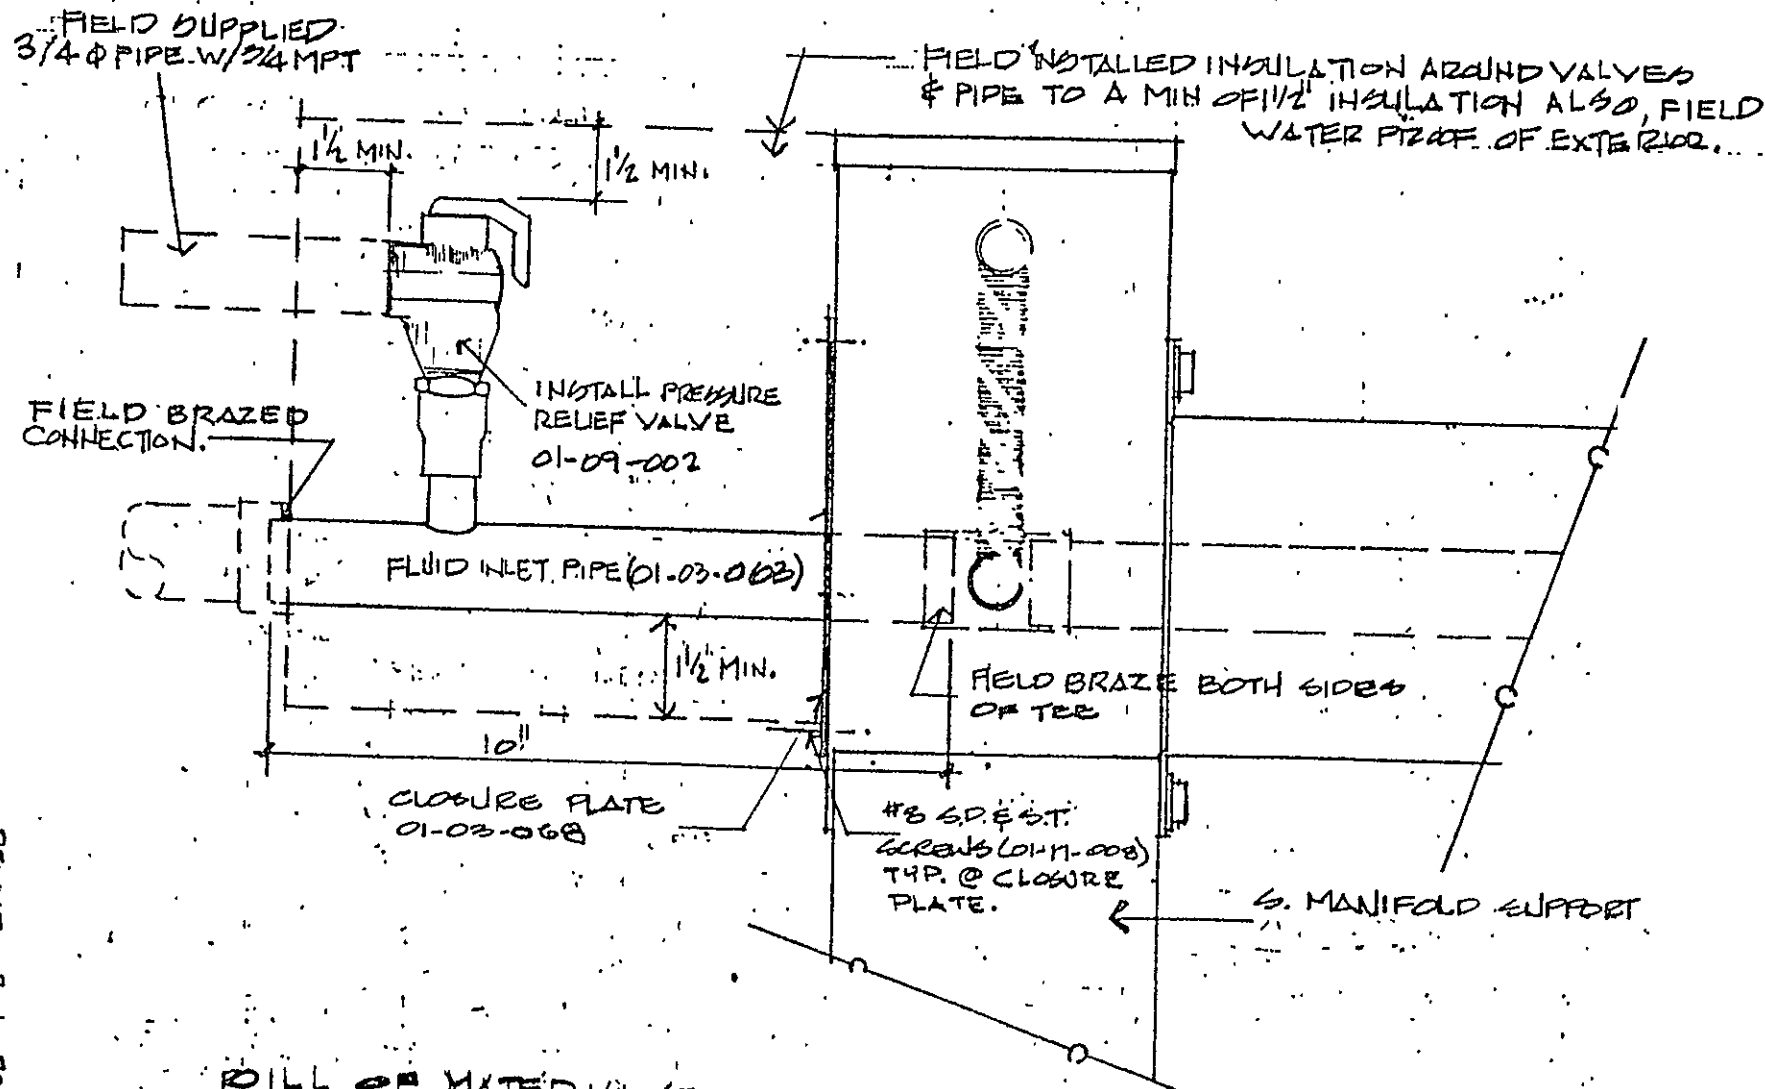 FIELD SUPPLIED
3/4 Φ PIPE W/ 3/4 MPT
FIELD INSTALLED INSULATION AROUND VALVES
& PIPE TO A MIN OF 1 1/2" INSULATION ALSO, FIELD
WATER PROOF OF EXTERIOR.
1 1/2 MIN.
1 1/2 MIN.
INSTALL PRESSURE
RELIEF VALVE
01-09-002
FIELD BRAZED
CONNECTION.
FLUID INLET PIPE (01-03-063)
1 1/2" MIN.
FIELD BRAZE BOTH SIDES
OF TEE
10"
CLOSURE PLATE
01-03-068
#8 S.D. & S.T.
SCREWS (01-17-008)
TYP. @ CLOSURE
PLATE.
S. MANIFOLD SUPPORT
BILL OF